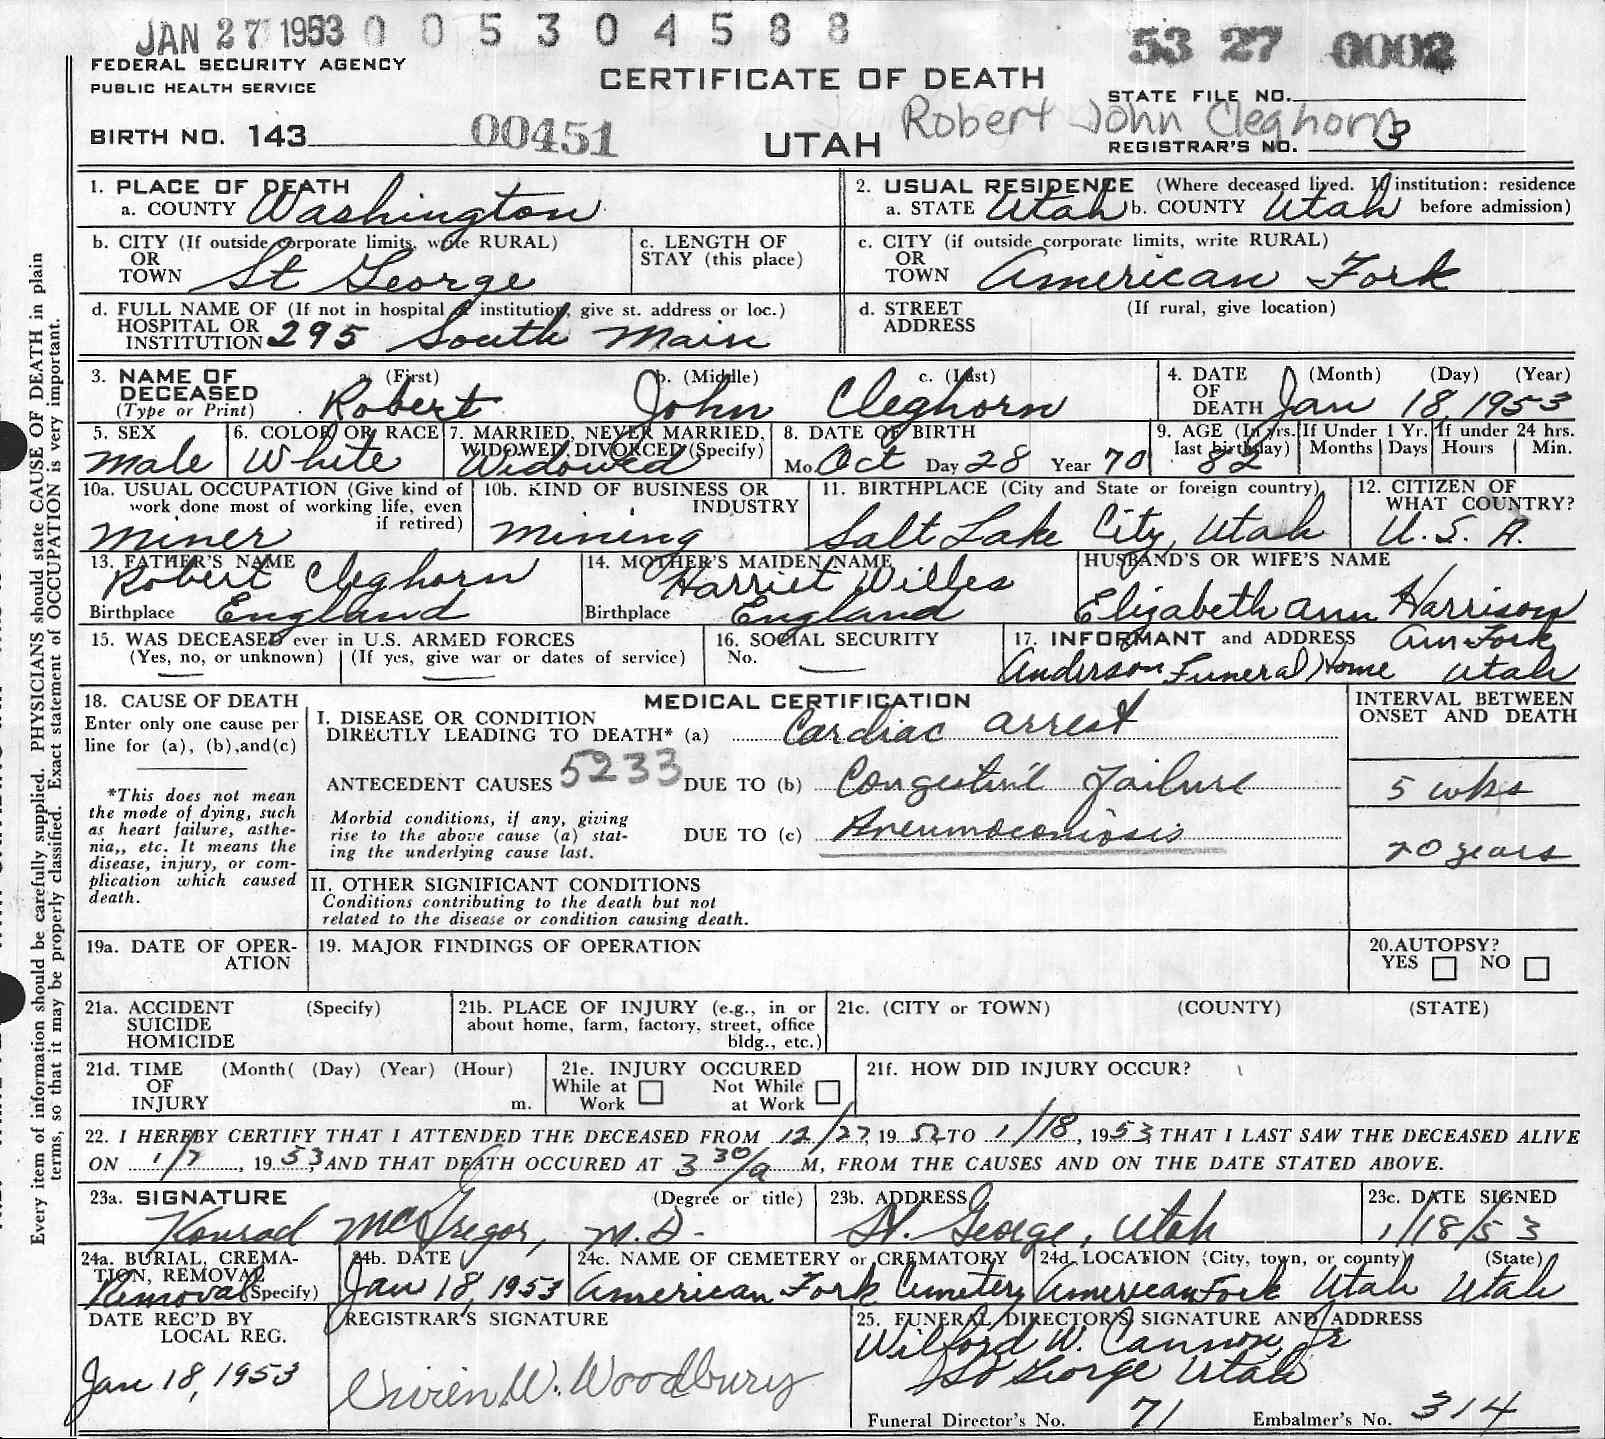 JAN 27 1953 0 0 5 3 0 4 5 8 8
53 27 0002
FEDERAL SECURITY AGENCY
PUBLIC HEALTH SERVICE
CERTIFICATE OF DEATH
STATE FILE NO.
Robert John Cleghorn
BIRTH NO. 143 00451
UTAH
REGISTRAR'S NO. 3
Every item of information should be carefully supplied. PHYSICIANS should state CAUSE OF DEATH in plain
terms, so that it may be properly classified. Exact statement of OCCUPATION is very important.
1. PLACE OF DEATH
a. COUNTY Washington
2. USUAL RESIDENCE (Where deceased lived. If institution: residence
a. STATE Utah b. COUNTY Utah before admission)
b. CITY (If outside corporate limits, write RURAL)
OR
TOWN St George
c. LENGTH OF
STAY (this place)
c. CITY (if outside corporate limits, write RURAL)
OR
TOWN American Fork
d. FULL NAME OF (If not in hospital or institution, give st. address or loc.)
HOSPITAL OR
INSTITUTION 295 South Main
d. STREET (If rural, give location)
ADDRESS
3. NAME OF a. (First) b. (Middle) c. (Last)
DECEASED
(Type or Print) Robert John Cleghorn
4. DATE (Month) (Day) (Year)
OF
DEATH Jan 18, 1953
5. SEX
Male
6. COLOR OR RACE
White
7. MARRIED, NEVER MARRIED,
WIDOWED, DIVORCED (Specify)
Widowed
8. DATE OF BIRTH
Mo. Oct Day 28 Year 70
9. AGE (In yrs.
last birthday) 82
If Under 1 Yr.
Months Days
If under 24 hrs.
Hours Min.
10a. USUAL OCCUPATION (Give kind of
work done most of working life, even
if retired)
Miner
10b. KIND OF BUSINESS OR
INDUSTRY
Mining
11. BIRTHPLACE (City and State or foreign country)
Salt Lake City, Utah
12. CITIZEN OF
WHAT COUNTRY?
U. S. A.
13. FATHER'S NAME
Robert Cleghorn
Birthplace England
14. MOTHER'S MAIDEN NAME
Harriet Willes
Birthplace England
HUSBAND'S OR WIFE'S NAME
Elizabeth Ann Harrison
15. WAS DECEASED ever in U.S. ARMED FORCES
(Yes, no, or unknown) (If yes, give war or dates of service)
16. SOCIAL SECURITY
No.
17. INFORMANT and ADDRESS Am Fork
Anderson Funeral Home Utah
18. CAUSE OF DEATH
Enter only one cause per
line for (a), (b),and(c)
*This does not mean
the mode of dying, such
as heart failure, asthe-
nia,, etc. It means the
disease, injury, or com-
plication which caused
death.
MEDICAL CERTIFICATION
I. DISEASE OR CONDITION
DIRECTLY LEADING TO DEATH* (a) Cardiac arrest
ANTECEDENT CAUSES 5233 DUE TO (b) Congestive Failure
Morbid conditions, if any, giving
rise to the above cause (a) stat-
ing the underlying cause last.
DUE TO (c) Pneumoconiosis
INTERVAL BETWEEN
ONSET AND DEATH
5 wks
20 years
II. OTHER SIGNIFICANT CONDITIONS
Conditions contributing to the death but not
related to the disease or condition causing death.
19a. DATE OF OPER-
ATION
19. MAJOR FINDINGS OF OPERATION
20.AUTOPSY?
YES NO
21a. ACCIDENT (Specify)
SUICIDE
HOMICIDE
21b. PLACE OF INJURY (e.g., in or
about home, farm, factory, street, office
bldg., etc.)
21c. (CITY or TOWN) (COUNTY) (STATE)
21d. TIME (Month( (Day) (Year) (Hour)
OF
INJURY m.
21e. INJURY OCCURED
While at Not While
Work at Work
21f. HOW DID INJURY OCCUR?
22. I HEREBY CERTIFY THAT I ATTENDED THE DECEASED FROM 12/27 19 52 TO 1/18, 1953 THAT I LAST SAW THE DECEASED ALIVE
ON 1/7, 19 53 AND THAT DEATH OCCURED AT 3 30/a M, FROM THE CAUSES AND ON THE DATE STATED ABOVE.
23a. SIGNATURE (Degree or title)
Konrad McGregor, M.D.
23b. ADDRESS
St. George, Utah
23c. DATE SIGNED
1/18/53
24a. BURIAL, CREMA-
TION, REMOVAL
Removal (Specify)
24b. DATE
Jan 18, 1953
24c. NAME OF CEMETERY or CREMATORY
American Fork Cemetery
24d. LOCATION (City, town, or county) (State)
American Fork Utah Utah
DATE REC'D BY
LOCAL REG.
Jan 18, 1953
REGISTRAR'S SIGNATURE
Vivien W. Woodbury
25. FUNERAL DIRECTOR'S SIGNATURE AND ADDRESS
Wilford W. Cannon, Jr
St George Utah
Funeral Director's No. 71 Embalmer's No. 314